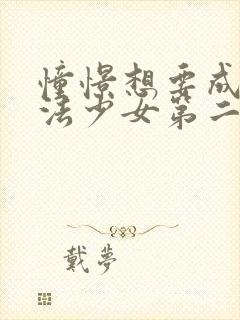 憧憬想要成
法少女第二
戴夢